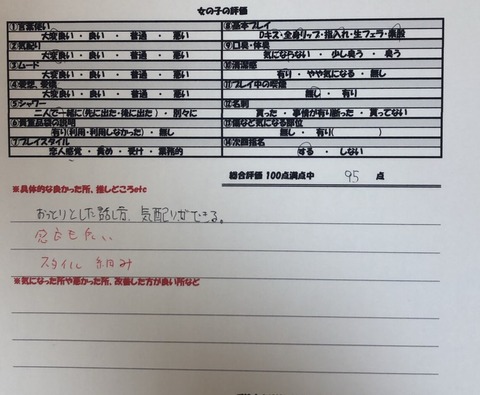 女の子の評価
①言葉使い
大変良い・良い・普通・悪い
②気配り
大変良い・良い・普通・悪い
③ムード
大変良い・良い・普通・悪い
④愛想、愛嬌
大変良い・良い・普通・悪い
⑤シャワー
二人で一緒に(先に出た・後に出た)・別々に
⑥貴重品袋の説明
有り(利用・利用しなかった)・無し
⑦プレイスタイル
恋人感覚・責め・受け・業務的
⑧基本プレイ
Dキス・全身リップ・指入れ・生フェラ・素股
⑨口臭・体臭
気にならない・少し臭う・臭う
⑩清潔感
有り・やや気になる・無し
⑪プレイ中の喫煙
無し・有り
⑫名刺
貰った・事情が有り断った・貰ってない
⑬傷など気になる部位
無し・有り( )
⑭次回指名
する・しない
総合評価 100点満点中 95 点
※具体的な良かった所、推しどころetc
おっとりとした話し方、気配りができる。
スタイル 細み
※気になった所や悪かった所、改善した方が良い所など